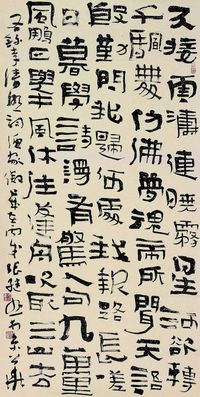 天接雲濤連曉霧星河欲轉
千帆舞仿佛夢魂歸帝所聞天語
殷勤問我歸何處我報路長嗟
日暮學詩謾有驚人句九萬里
風鵬正舉風休住蓬舟吹取三山去
李清照詞漁家傲